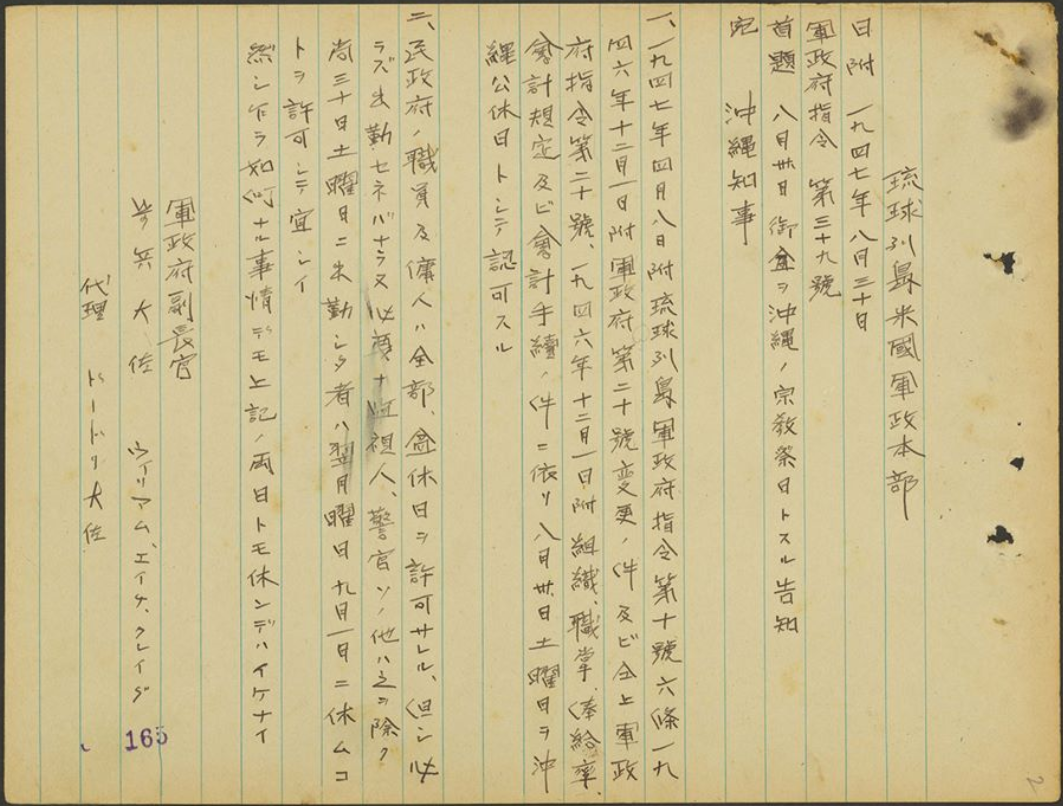 琉球列島米國軍政本部
日附 一九四七年八月三十日
軍政府指令 第三十九號
首題 八月卅日御盆ヲ沖縄ノ宗教祭日トスル告知
宛 沖縄知事
一、一九四七年四月八日附琉球列島軍政府指令第十號六條一九
四六年十二月一日附軍政府第二十號変更ノ件及ビ仝上軍政
府指令第二十號、一九四六年十二月一日附組織、職掌、俸給率、
會計規定及ビ會計手續ノ件ニ依リ八月卅日土曜日ヲ沖
縄公休日トシテ認可スル
二、民政府ノ職員及傭人ハ全部、盆休日ヲ許可サレル、但シ必
ラズ出勤セネバナラヌ必須ナ 視人、警官ソノ他ハ之ヲ除ク
尚三十日土曜日ニ出勤シタ者ハ翌月曜日九月一日ニ休ムコ
トヲ許可シテ宜シイ
然シ乍ラ如何ナル事情デモ上記ノ両日トモ休ンデハイケナイ
軍政府副長官
歩兵大佐 ウィリアム、エイチ、クレイグ
代理 大佐
165
2